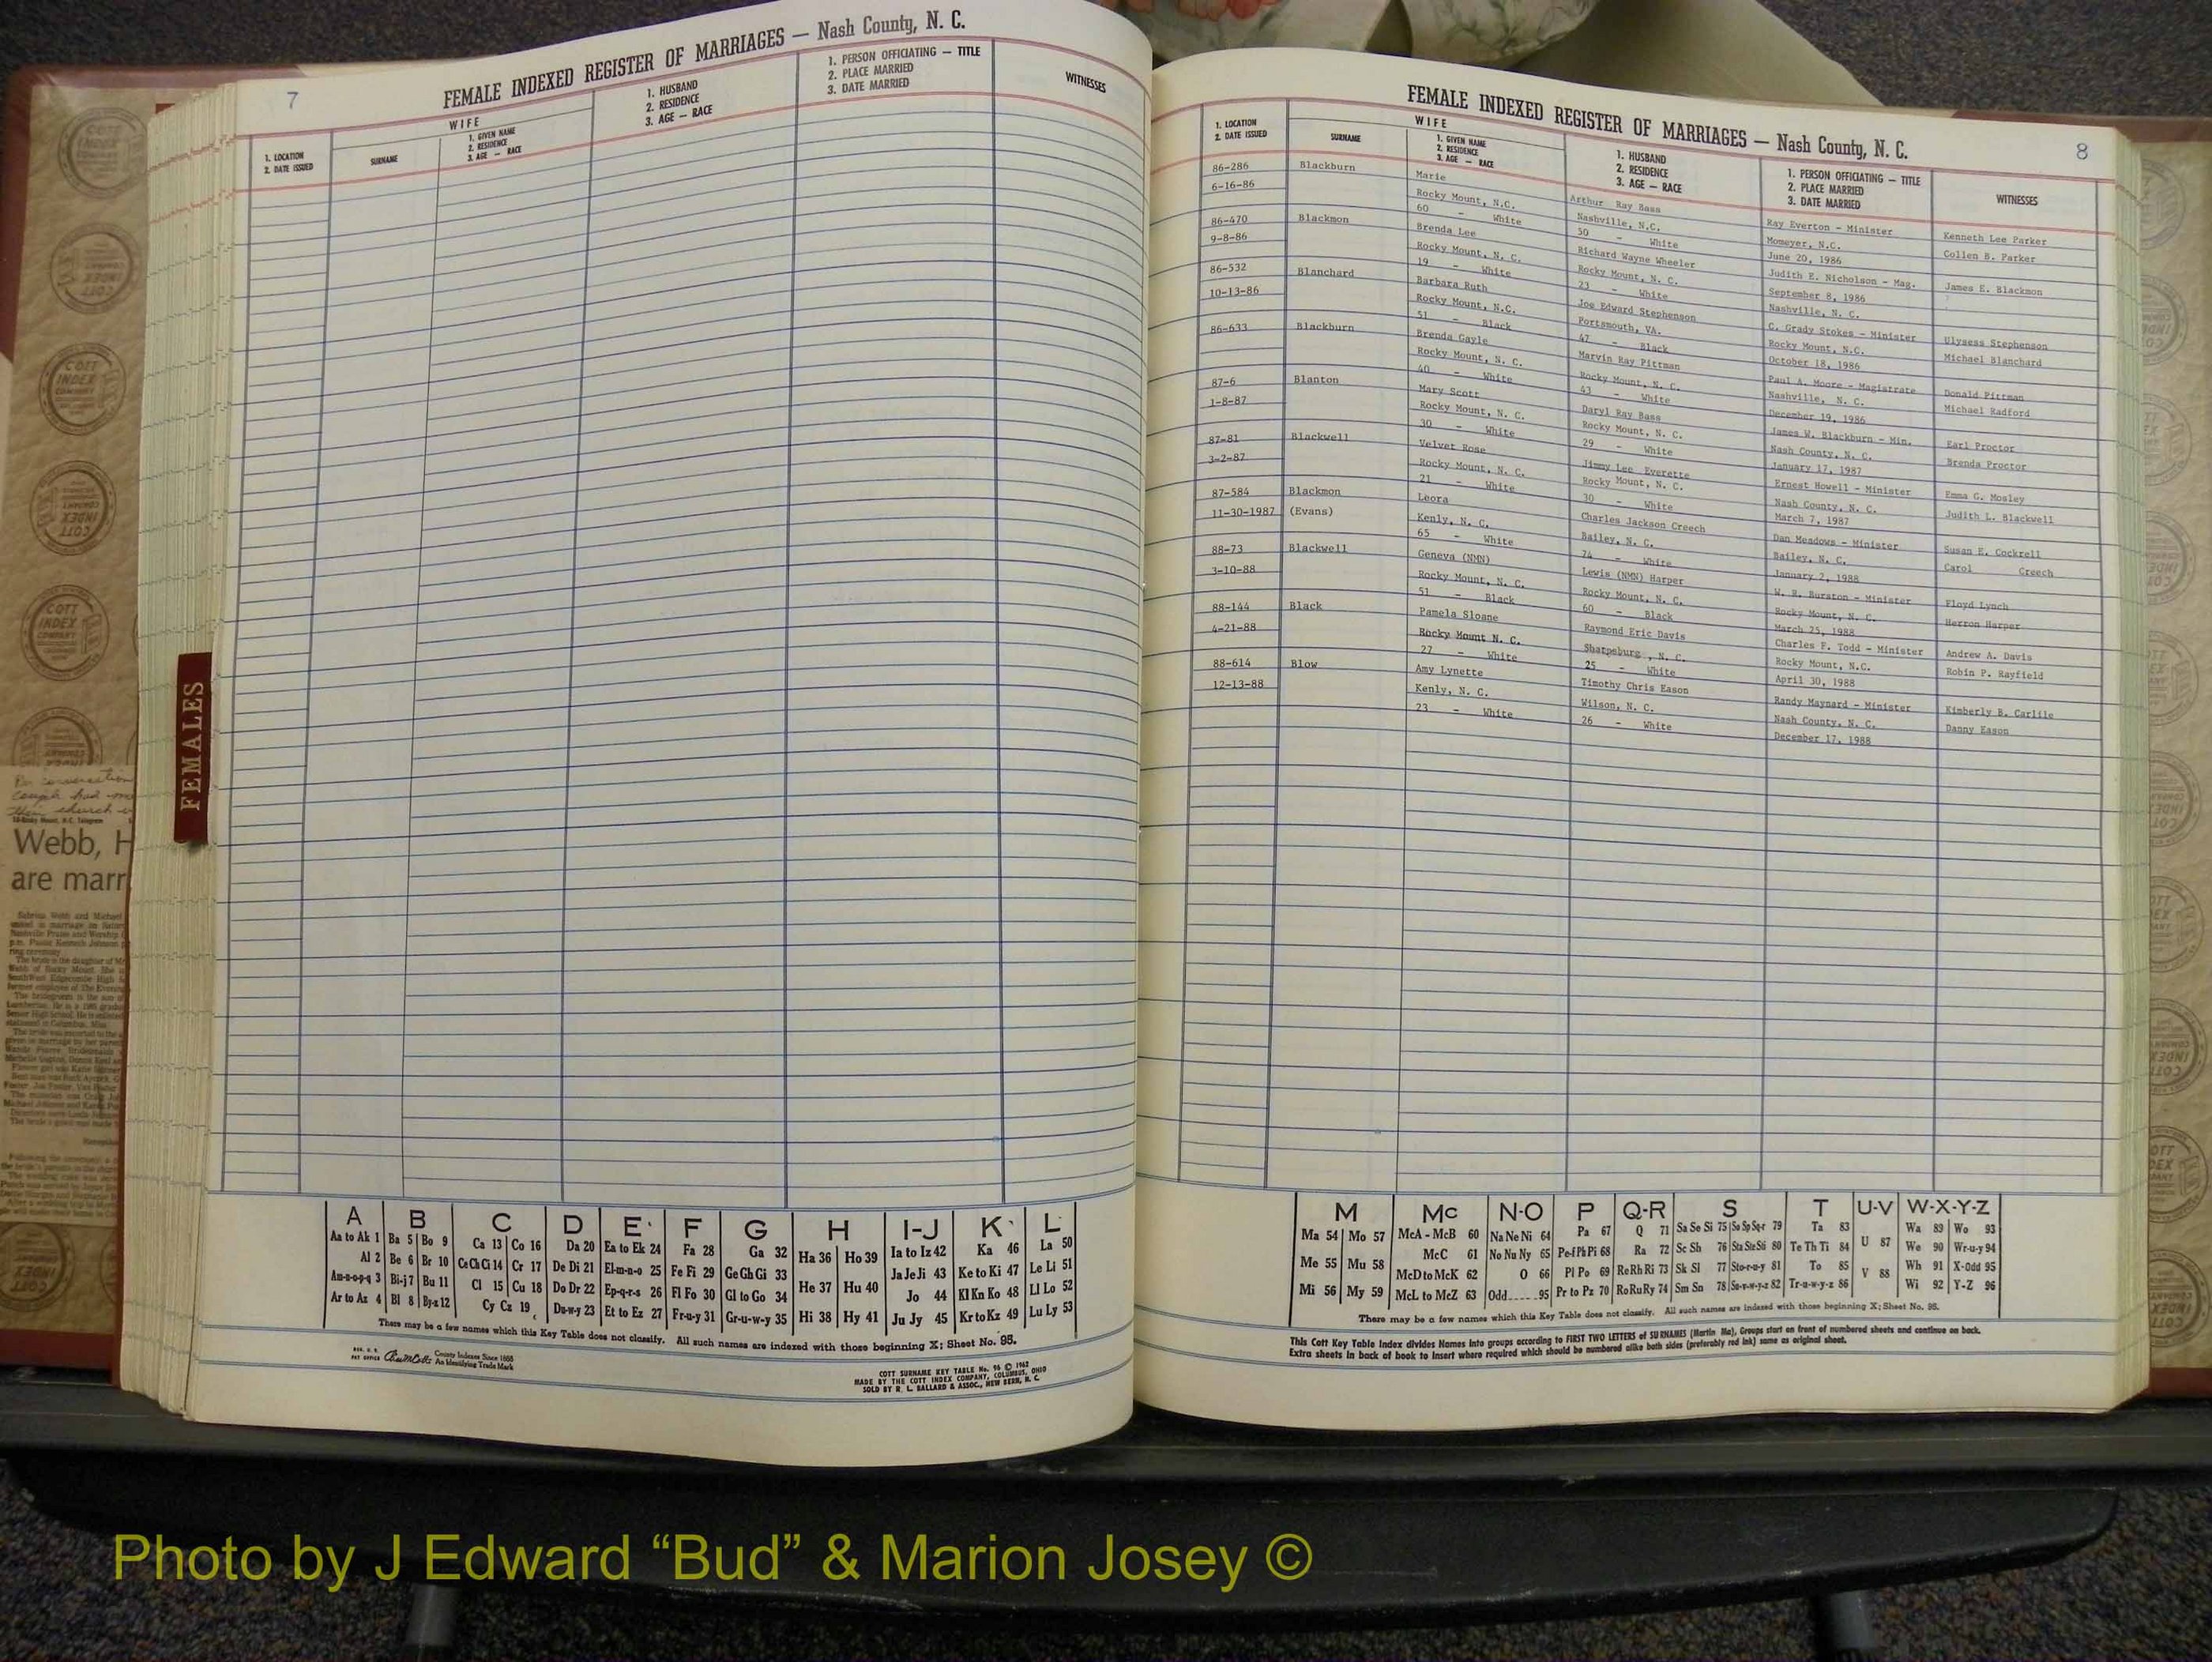 7
FEMALE INDEXED REGISTER OF MARRIAGES — Nash County, N. C.
1. LOCATION
2. DATE ISSUED
WIFE
SURNAME
1. GIVEN NAME
2. RESIDENCE
3. AGE — RACE
1. HUSBAND
2. RESIDENCE
3. AGE — RACE
1. PERSON OFFICIATING — TITLE
2. PLACE MARRIED
3. DATE MARRIED
WITNESSES
FEMALES
Webb, H
are marr
A B C D E F G H I-J K L
Aa to Ak 1 Ba 5 Bo 9 Ca 13 Co 16 Da 20 Ea to Ek 24 Fa 28 Ga 32 Ha 36 Ho 39 Ia to Iz 42 Ka 46 La 50
Al 2 Be 6 Br 10 Ce Ch Ci 14 Cr 17 De Di 21 El-m-n-o 25 Fe Fi 29 Ge Gh Gi 33 He 37 Hu 40 Ja Je Ji 43 Ke to Ki 47 Le Li 51
Am-n-o-p-q 3 Bi-j 7 Bu 11 Cl 15 Cu 18 Do Dr 22 Ep-q-r-s 26 Fl Fo 30 Gl to Go 34 Jo 44 Kl Kn Ko 48 Ll Lo 52
Ar to Az 4 Bl 8 By-z 12 Cy Cz 19 Du-w-y 23 Et to Ez 27 Fr-u-y 31 Gr-u-w-y 35 Hi 38 Hy 41 Ju Jy 45 Kr to Kz 49 Lu Ly 53
There may be a few names which this Key Table does not classify. All such names are indexed with those beginning X; Sheet No. 95.
County Indexes Since 1888
An Identifying Trade Mark
COTT SURNAME KEY TABLE No. 96 © 1962
MADE BY THE COTT INDEX COMPANY, COLUMBUS, OHIO
SOLD BY R. L. BALLARD & ASSOC., NEW BERN, N. C.
FEMALE INDEXED REGISTER OF MARRIAGES — Nash County, N. C.
8
1. LOCATION
2. DATE ISSUED
WIFE
SURNAME
1. GIVEN NAME
2. RESIDENCE
3. AGE — RACE
1. HUSBAND
2. RESIDENCE
3. AGE — RACE
1. PERSON OFFICIATING — TITLE
2. PLACE MARRIED
3. DATE MARRIED
WITNESSES
86-286 Blackburn Marie Arthur Ray Bass Ray Everton - Minister Kenneth Lee Parker
6-16-86 Rocky Mount, N.C. Nashville, N.C. Momeyer, N.C. Collen B. Parker
60 - White 50 - White June 20, 1986
86-470 Blackmon Brenda Lee Richard Wayne Wheeler Judith E. Nicholson - Mag. James E. Blackmon
9-8-86 Rocky Mount, N. C. Rocky Mount, N. C. September 8, 1986
19 - White 23 - White Nashville, N. C.
86-532 Blanchard Barbara Ruth Joe Edward Stephenson C. Grady Stokes - Minister Ulysess Stephenson
10-13-86 Rocky Mount, N.C. Portsmouth, VA. Rocky Mount, N.C. Michael Blanchard
51 - Black 47 - Black October 18, 1986
86-633 Blackburn Brenda Gayle Marvin Ray Pittman Paul A. Moore - Magistrate Donald Pittman
Rocky Mount, N. C. Rocky Mount, N. C. Nashville, N. C. Michael Radford
40 - White 43 - White December 19, 1986
87-6 Blanton Mary Scott Daryl Ray Bass James W. Blackburn - Min. Earl Proctor
1-8-87 Rocky Mount, N. C. Rocky Mount, N. C. Nash County, N. C. Brenda Proctor
30 - White 29 - White January 17, 1987
87-81 Blackwell Velvet Rose Jimmy Lee Everette Ernest Howell - Minister Emma G. Mosley
3-2-87 Rocky Mount, N. C. Rocky Mount, N. C. Nash County, N. C. Judith L. Blackwell
21 - White 30 - White March 7, 1987
87-584 Blackmon Leora Charles Jackson Creech Dan Meadows - Minister Susan E. Cockrell
11-30-1987 (Evans) Kenly, N. C. Bailey, N. C. Bailey, N. C. Carol Creech
65 - White 74 - White January 2, 1988
88-73 Blackwell Geneva (NMN) Lewis (NMN) Harper W. R. Burston - Minister Floyd Lynch
3-10-88 Rocky Mount, N. C. Rocky Mount, N. C. Rocky Mount, N. C. Herron Harper
51 - Black 60 - Black March 25, 1988
88-144 Black Pamela Sloane Raymond Eric Davis Charles F. Todd - Minister Andrew A. Davis
4-21-88 Rocky Mount N. C. Sharpsburg , N. C. Rocky Mount, N.C. Robin P. Rayfield
27 - White 25 - White April 30, 1988
88-614 Blow Amy Lynette Timothy Chris Eason Randy Maynard - Minister Kimberly B. Carlile
12-13-88 Kenly, N. C. Wilson, N. C. Nash County, N. C. Danny Eason
23 - White 26 - White December 17, 1988
M Mc N-O P Q-R S T U-V W-X-Y-Z
Ma 54 Mo 57 McA - McB 60 Na Ne Ni 64 Pa 67 Q 71 Sa Se Si 75 So Sp Sq-r 79 Ta 83 U 87 Wa 89 Wo 93
Me 55 Mu 58 McC 61 No Nu Ny 65 Pe-f Ph Pi 68 Ra 72 Sc Sh 76 Sta Ste Sti 80 Te Th Ti 84 We 90 Wr-u-y 94
McD to McK 62 O 66 Pl Po 69 Re Rh Ri 73 Sk Sl 77 Sto-r-u-y 81 To 85 V 88 Wh 91 X-Odd 95
Mi 56 My 59 McL to McZ 63 Odd 95 Pr to Pz 70 Ro Ru Ry 74 Sm Sn 78 Su-v-w-y-z 82 Tr-u-w-y-z 86 Wi 92 Y-Z 96
There may be a few names which this Key Table does not classify. All such names are indexed with those beginning X; Sheet No. 95.
This Cott Key Table Index divides Names into groups according to FIRST TWO LETTERS of SURNAMES (Martin Ma), Groups start on front of numbered sheets and continue on back.
Extra sheets in back of book to insert where required which should be numbered alike both sides (preferably red ink) same as original sheet.
Photo by J Edward “Bud” & Marion Josey ©